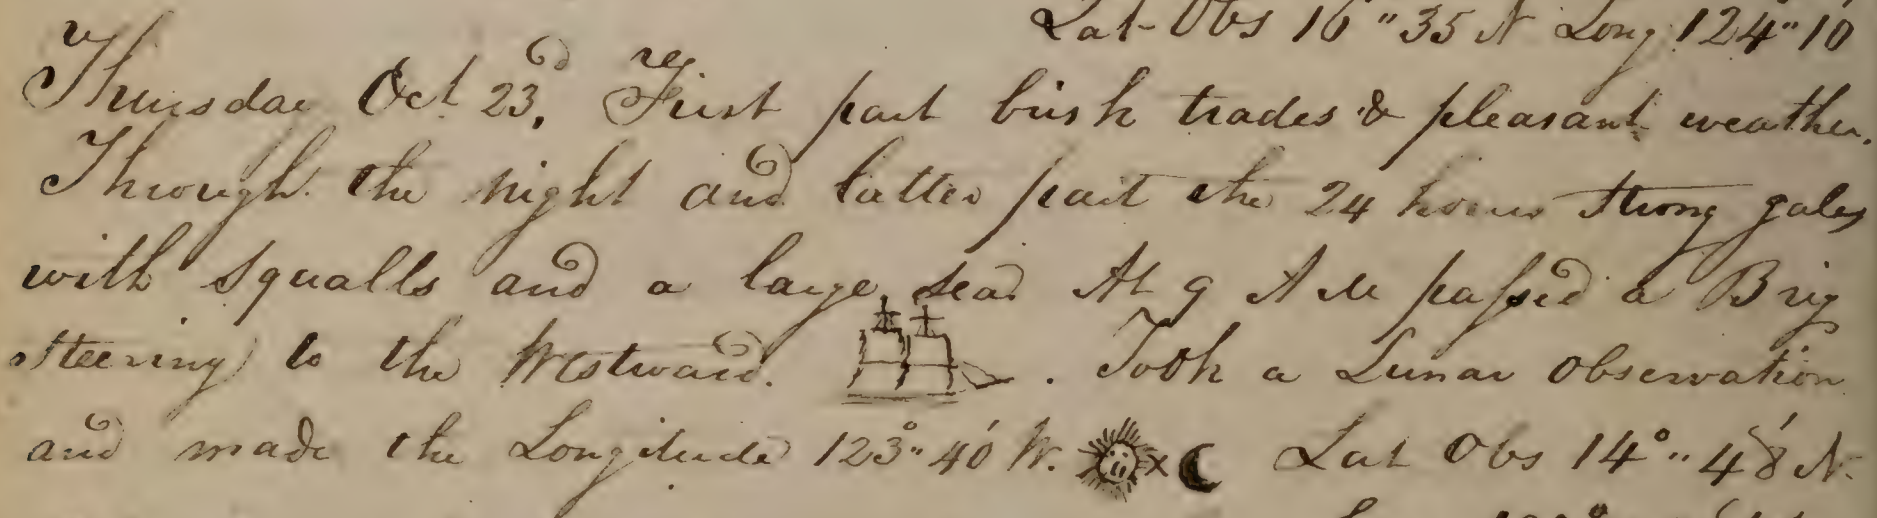 Lat Obs 16°" 35 N Long 124°" 10'
Thursday Oct 23d, First part brisk trades & pleasant weather.
Through the night and latter part the 24 hours strong gales
with squalls and a large sea At 9 A M passed a Brig
steering to the Westward. . Took a Lunar Observation
and made the Longitude 123°" 40' W. x Lat Obs 14°" 48' N